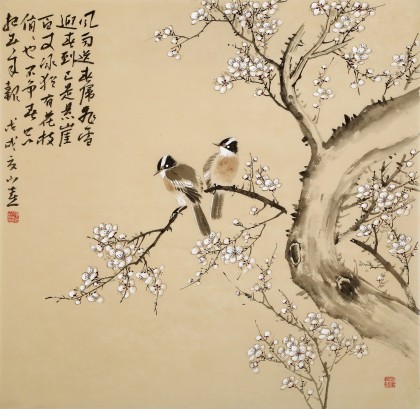 风雨送春归飞雪
迎春到已是悬崖
百丈冰犹有花枝
俏俏也不争春只
把春来报 戊戌